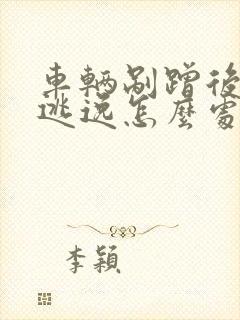 車輛剮蹭後
逃逸怎麼處
李穎